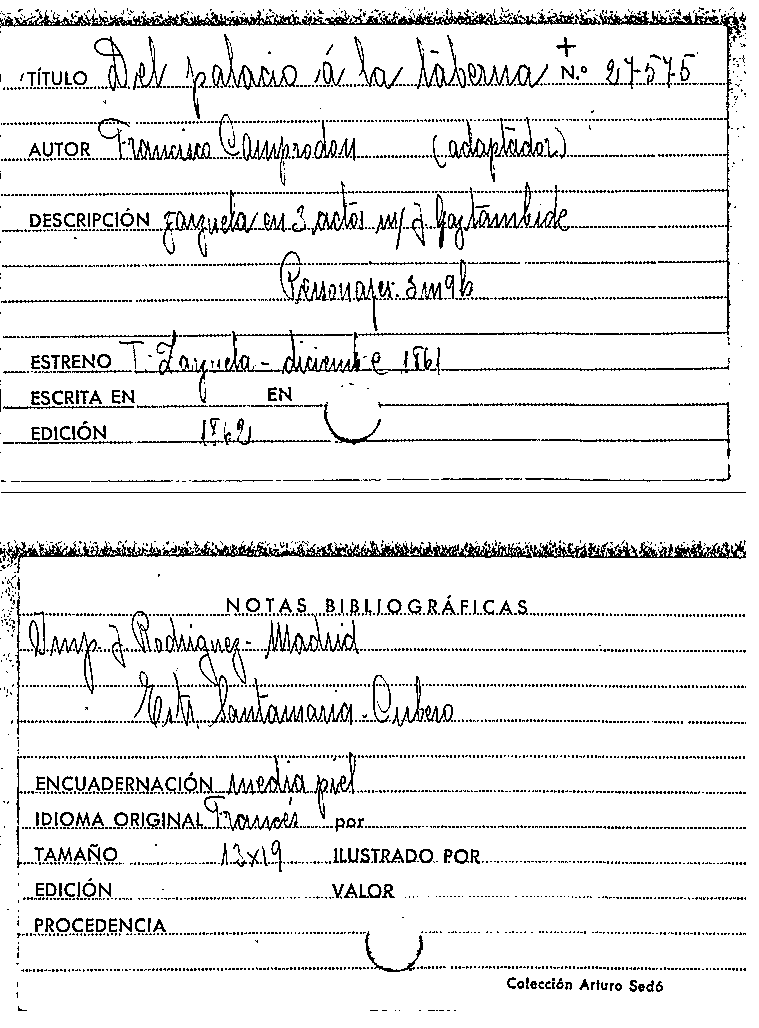 +
TÍTULO Del palacio á la taberna N.º 27575
AUTOR Francisco Camprodon (adaptador)
DESCRIPCIÓN zarzuela en 3 actos m/ J Gaztambide
Personajes. 3m9h
ESTRENO T- Zarzuela - diciembre 1861
ESCRITA EN EN
EDICIÓN 1862
NOTAS BIBLIOGRÁFICAS
Imp. J Rodriguez - Madrid
Estr. Santamaria - Cubero
ENCUADERNACIÓN media piel
IDIOMA ORIGINAL Francés por
TAMAÑO 13x19 ILUSTRADO POR
EDICIÓN VALOR
PROCEDENCIA
Colección Arturo Sedó